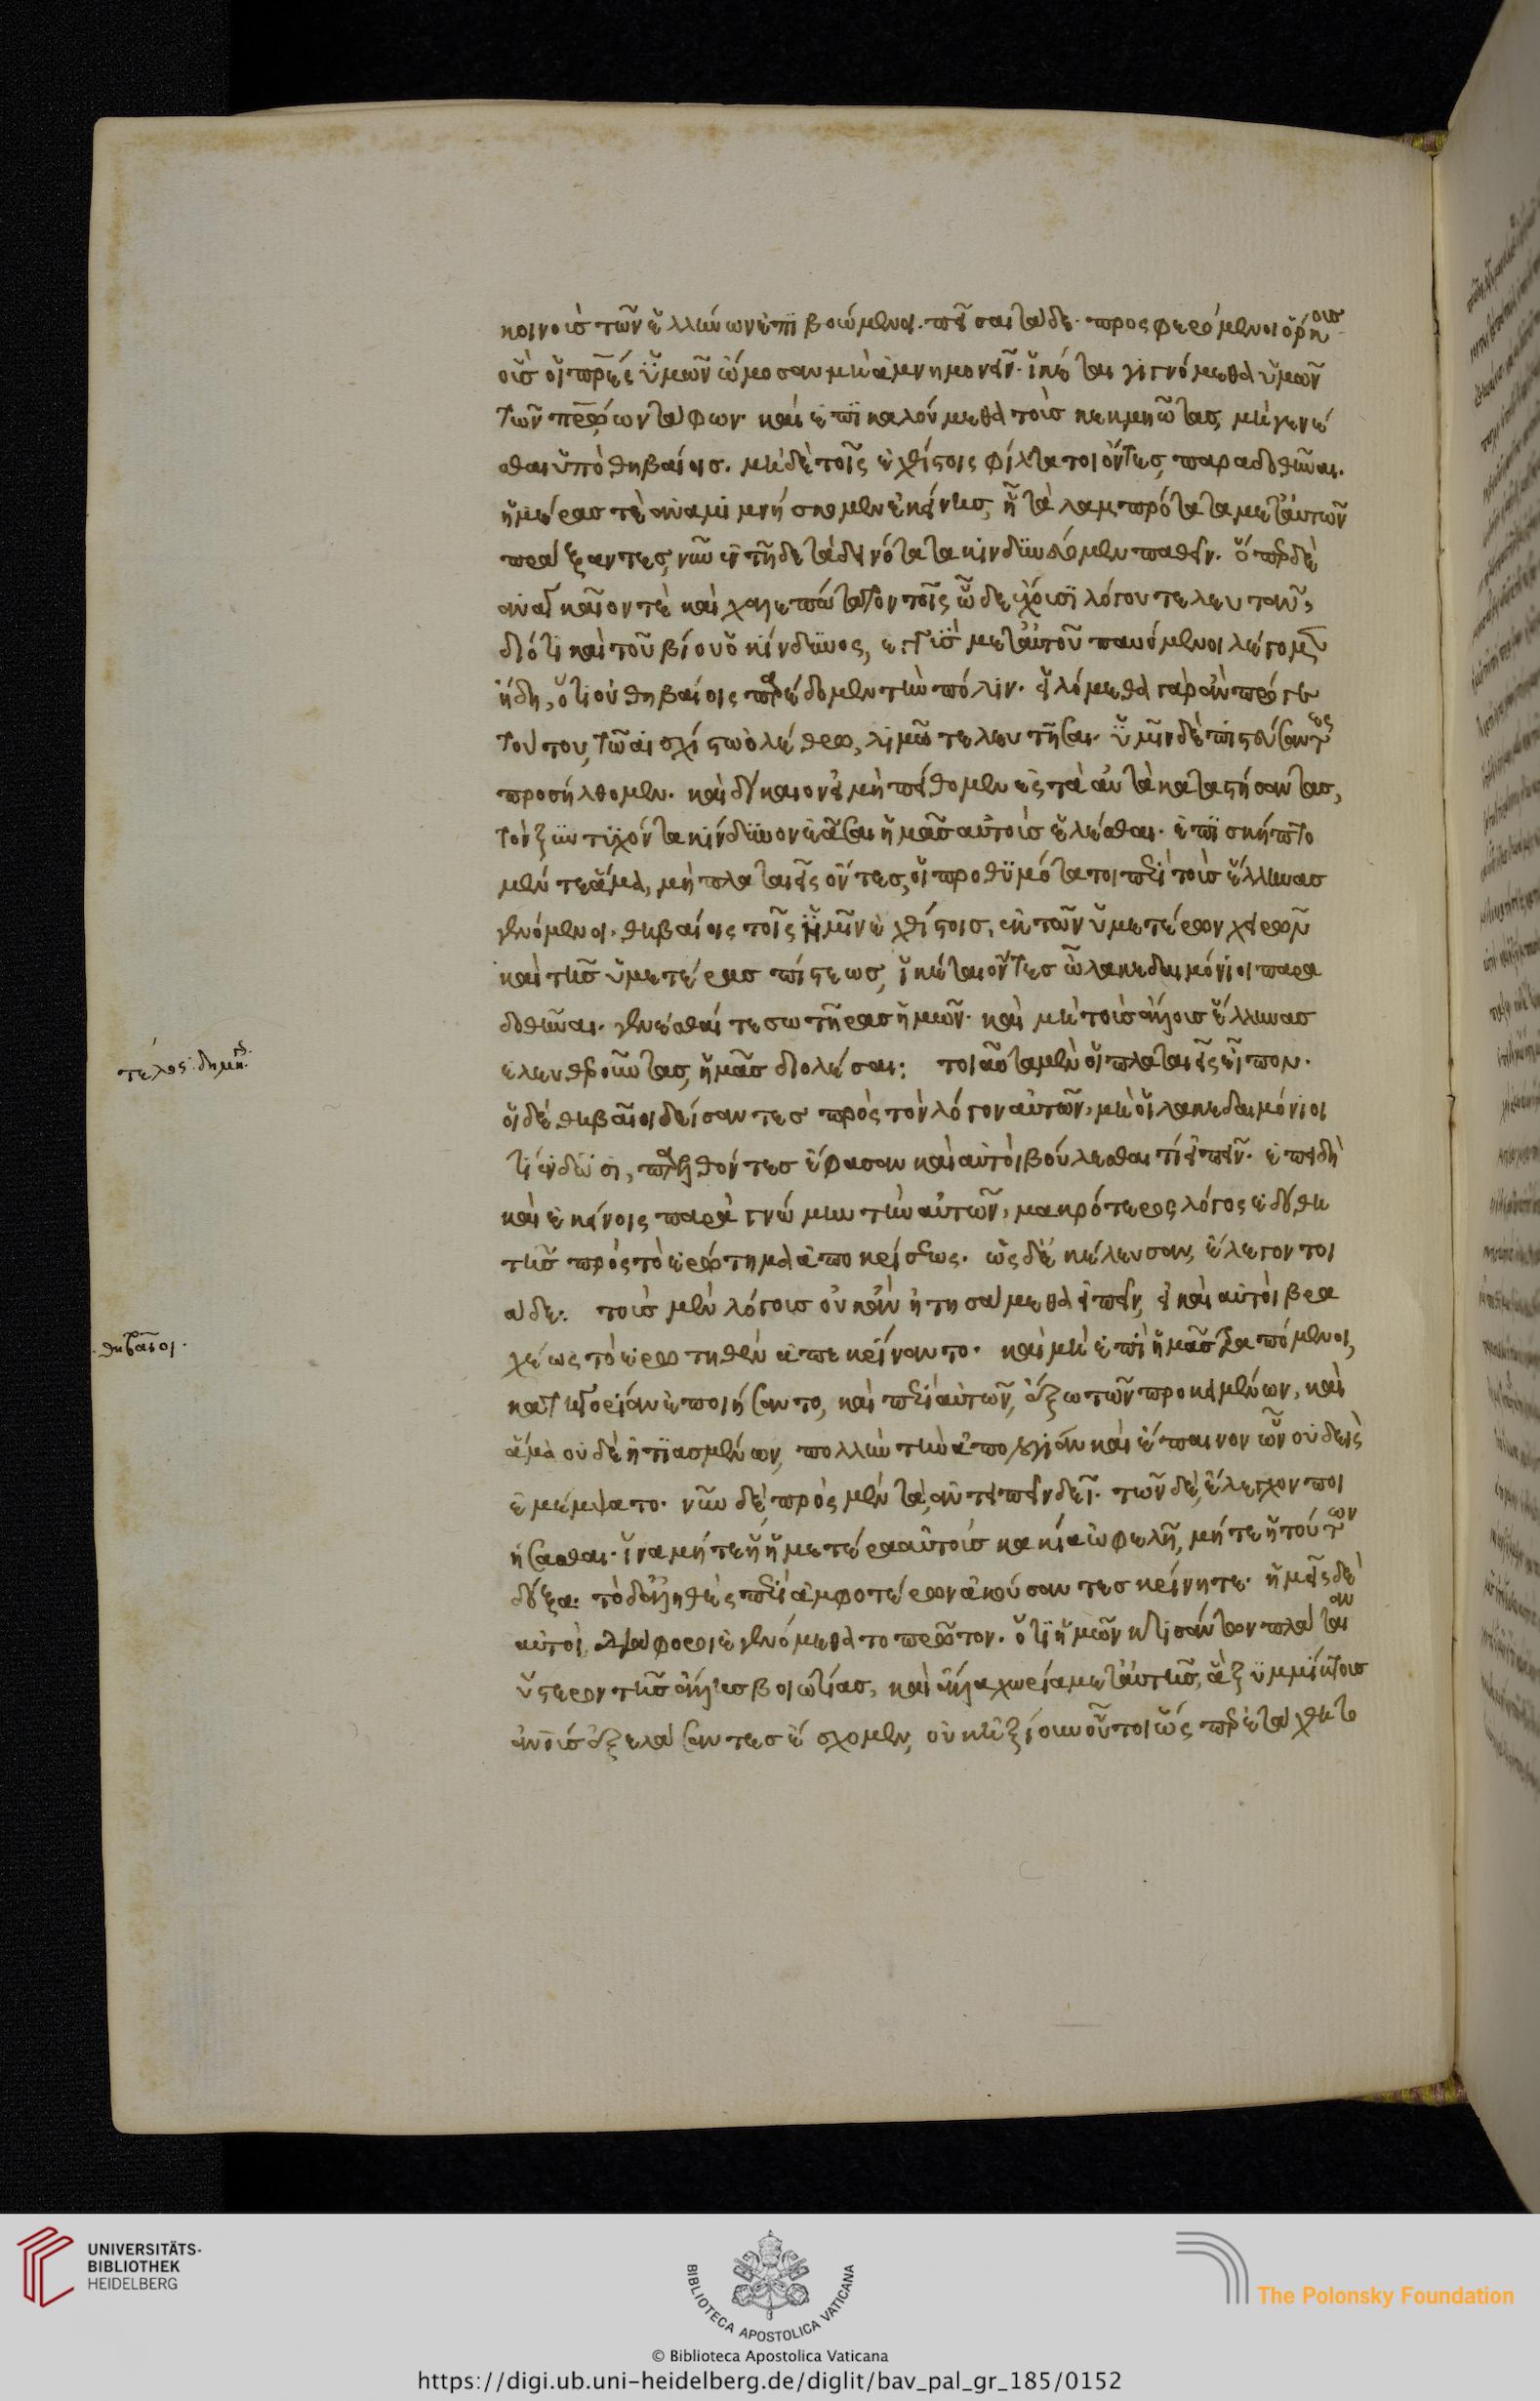 κοινοὺς τῶν ἑλλήνων ἐπιβοώμενοι. πεῖσαι τάδε. προσφερόμενοι ὅρκους
οὓς οἱ πρες ὑμῶν ὤμοσαν μὴ ἀμνημονεῖν. ἱκέται γιγνόμεθα ὑμῶν
τῶν πρώων τάφων. καὶ ἐπικαλούμεθα τοὺς κεκμηῶτας, μὴ γενέ
σθαι ὑπὸ θηβαίοις. μηδὲ τοῖς ἐχθίστοις φίλτατοι ὄντες, παραδοθῆναι.
ἡμέρας τὲ ἀναμιμνήσκομεν ἐκείνης, ᾗ τὰ λαμπρότατα μετ' αὐτῶν
πράξαντες, νῦν ἐν τῇδε τὰ δεινότατα κινδυνεύομεν παθεῖν. ὅπερ δὲ
ἀναγκαῖον τὲ καὶ χαλεπώτατον τοῖς ὧδε ἔχουσι λόγου τελευτᾶν,
διότι καὶ τοῦ βίου ὁ κίνδυνος, ἐγγὺς μετ' αὐτοῦ παυόμενοι λέγομεν
ἤδη, ὅτι οὐ θηβαίοις παρέδομεν τὴν πόλιν. εἱλόμεθα γὰρ ἂν πρό γε
τούτου, τῷ αἰσχίστῳ ὀλέθρῳ, λιμῷ τελευτῆσαι. ὑμῖν δὲ πιστεύσαντες
προσήλθομεν. καὶ δίκαιον εἰ μὴ πείθομεν ἐς τὰ αὐτὰ καταστήσαντας,
τὸν ξυντυχόντα κίνδυνον ἐᾶσαι ἡμᾶς αὐτοὺς ἑλέσθαι. ἐπισκήπτο
μέν τε ἅμα, μὴ πλαταιεῖς ὄντες, οἱ προθυμότατοι περὶ τοὺς ἕλληνας
γενόμενοι. θηβαίοις τοῖς ἡμῖν ἐχθίστοις, ἐκ τῶν ὑμετέρων χειρῶν
καὶ τῆς ὑμετέρας πίστεως, ἱκέται ὄντες ὦ λακεδαιμόνιοι παρα
δοθῆναι. γενέσθαι τε σωτῆρας ἡμῶν. καὶ μὴ τοὺς ἄλλους ἕλληνας
ἐλευθεροῦντας, ἡμᾶς διολέσαι: τοιαῦτα μὲν οἱ πλαταιεῖς εἶπον.
τέλος δημη.
οἱ δὲ θηβαῖοι δείσαντες πρὸς τὸν λόγον αὐτῶν, μὴ οἱ λακεδαιμόνιοι
τι ἐνδῶσι, παρελθόντες ἔφασαν καὶ αὐτοὶ βούλεσθαι τι εἰπεῖν. ἐπειδὴ
καὶ ἐκείνοις παρὰ γνώμην τὴν αὐτῶν, μακρότερος λόγος ἐδόθη
τῆς πρὸς τὸ ἐρώτημα ἀποκρίσεως. ὡς δ' ἐκέλευσαν, ἔλεγον τοι
άδε: τοὺς μὲν λόγους οὐκ ἂν ᾐτησάμεθα εἰπεῖν, εἰ καὶ αὐτοὶ βρα
χέως τὸ ἐρωτηθὲν ἀπεκρίναντο. καὶ μὴ ἐπὶ ἡμᾶς τραπόμενοι,
θηβαῖοι.
κατηγορίαν ἐποιήσαντο, καὶ περὶ αὑτῶν, ἔξω τῶν προκειμένων, καὶ
ἅμα οὐδὲ ᾐτιασμένων, πολλὴν τὴν ἀπολογίαν καὶ ἔπαινον ὧν οὐδεὶς
ἐμέμψατο. νῦν δὲ, πρὸς μὲν τὰ, ἀντειπεῖν δεῖ. τῶν δὲ, ἔλεγχον ποι
ήσασθαι. ἵνα μήτε ἡ ἡμετέρα αὐτοὺς κακία ὠφελῇ, μήτε ἡ τούτων
δόξα: τὸ δ' ἀληθὲς περὶ ἀμφοτέρων ἀκούσαντες κρίνητε. ἡμεῖς δὲ
αὐτοῖς διάφοροι ἐγενόμεθα τὸ πρῶτον. ὅτι ἡμῶν κτισάντων πλάταιαν
ὕστερον τῆς ἄλλης βοιωτίας, καὶ ἄλλα χωρία μετ' αὐτῆς, ἃ ξυμμίκτους
ἀνους ἐξελάσαντες ἔσχομεν, οὐκ ἠξίουν οὗτοι ὥσπερ ἐτάχθη τὸ
UNIVERSITÄTS-
BIBLIOTHEK
HEIDELBERG
BIBLIOTECA APOSTOLICA VATICANA
The Polonsky Foundation
© Biblioteca Apostolica Vaticana
https://digi.ub.uni-heidelberg.de/diglit/bav_pal_gr_185/0152